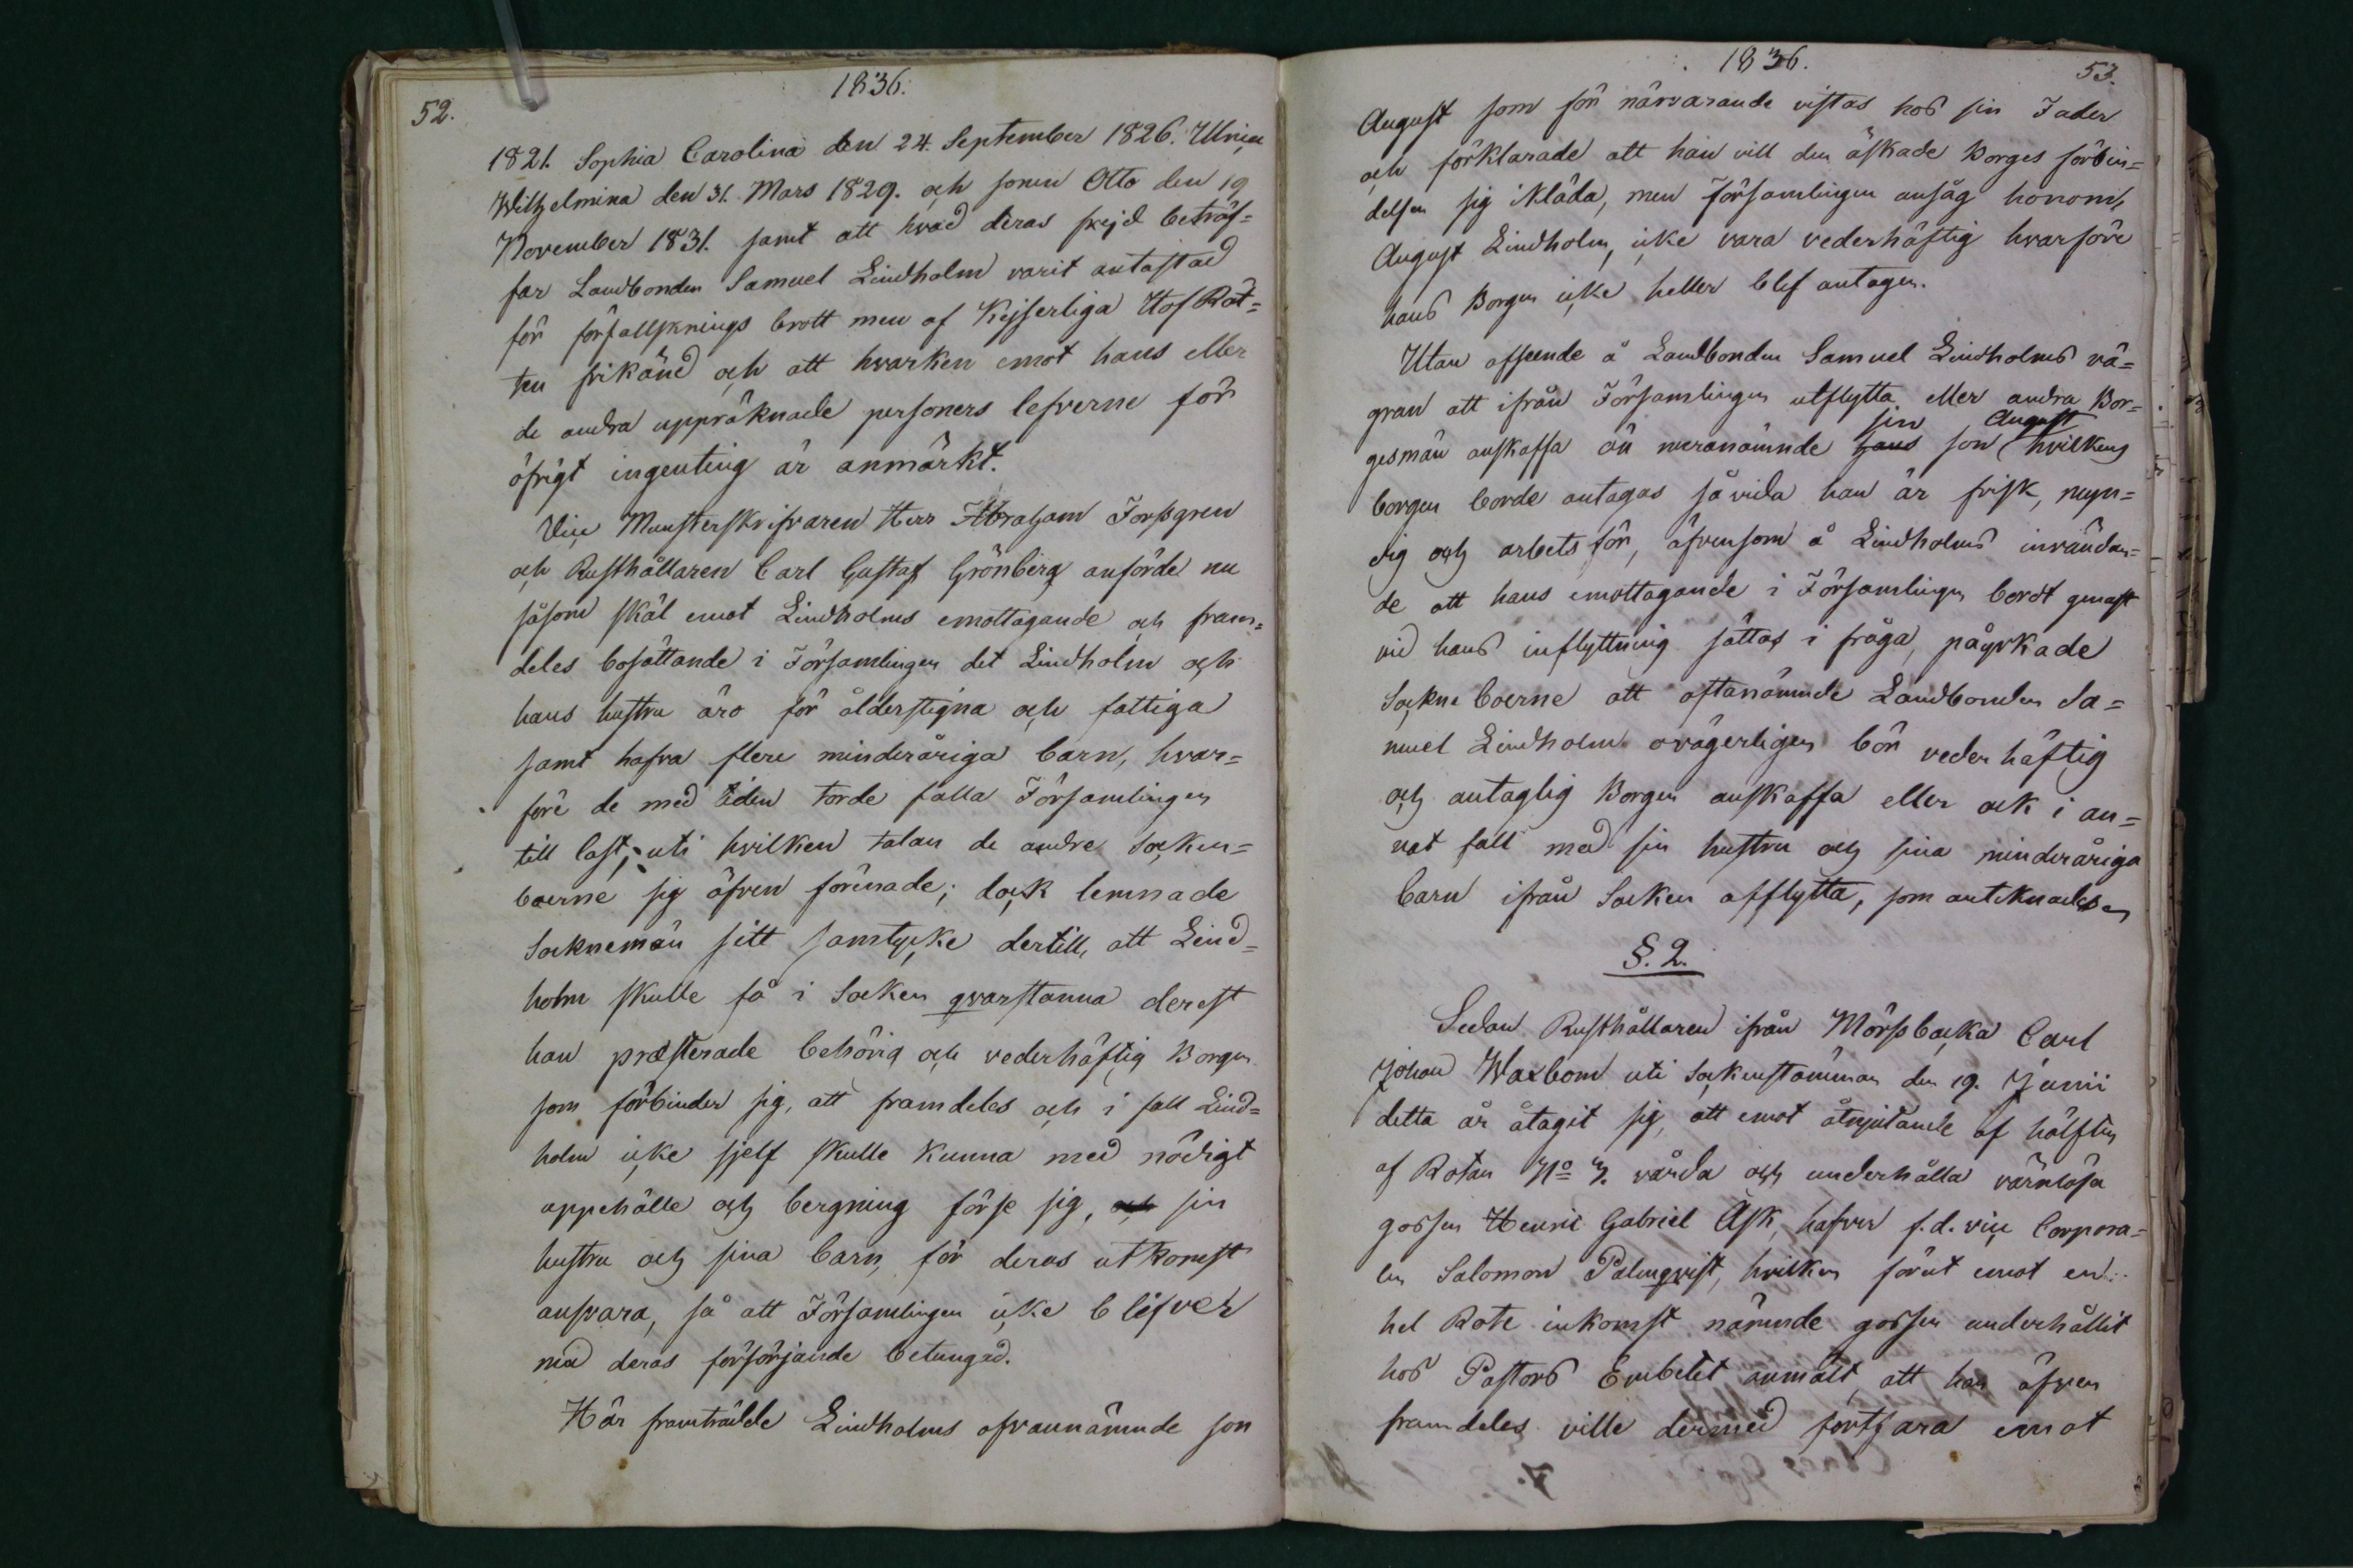 52.
1836.
1821. Sophia Carolina den 24. September 1826. Ulrica
Wilhelmina den 31. Mars 1829. och sonen Otto den 19
November 1831. samt att hvad deras frejd beträf=
far Landbonden Samuel Lindholm varit antastad
för förfallsknings brott men af Kejserliga Hof Rät=
ten frikänd och att hvarken emot hans eller
de andra uppräknade personers lefverne för
öfrigt ingenting är anmärkt.
Vice Munsterskrifvaren Herr Abraham Forssgren
och Rusthållaren Carl Gustaf Grönberg anförde nu
såsom skäl emot Lindholms emottagande och fram=
deles bosättande i Församlingen det Lindholm och
hans hustru äro för ålderstigna och fattiga
samt hafva flere minderåriga barn, hvar=
före de med tiden torde falla Församlingen
till last; uti hvilken talan de andre Socken=
boerne sig äfven förenade; dock lemnade
Socknemän sitt samtycke dertill, att Lind=
holm skulle få i Socken qvarstanna derest
han præsterade behörig och vederhäftig Borgen
som förbinder sig, att framdeles och i fall Lind=
holm icke sjelf skulle kunna med nödigt
uppehälle och bergning förse sig, och sin
hustru och sina barn, för deras utkomst
ansvara, så att Församlingen icke blifver
med deras försörjande betungad.
Här framträdde Lindholms ofvannämnde son
1836.
53.
August som för närvarande vistas hos sin Fader
och förklarade att han vill den äskade Borges förbin=
delsen sig ikläda, men Församlingen ansåg honom,
August Lindholm, icke vara vederhäftig hvarföre
hans Borgen icke heller blef antagen.
Utan afseende å Landbonden Samuel Lindholms vä=
gran att ifrån Församlingen utflytta eller andra Bor=
sin August
gesmän anskaffa än meranämnde hans son hvilkens
borgen borde antagas så vida han är frisk, myn=
dig och arbets för, äfvensom å Lindholms invändan=
de att hans emottagande i Församlingen bordt genast
vid hans inflyttning sättas i fråga, påyrkade
Sockne boerne att oftanämnde Landbonden Sa=
muel Lindholm ovägerligen bör vederhäftig
och antaglig Borgen anskaffa eller ock i an=
nat fall med sin hustru och sina minderåriga
barn ifrån Socken afflytta, som antecknades
§. 2.
Sedan Rusthållaren ifrån Mörssbacka Carl
Johan Waxbom uti sockenstämman den 19. Junii
detta år åtagit sig, att emot åtnjutande af hälften
af Rotan No 7. vårda och underhålla värnlösa
gossen Henric Gabriel Ask, hafver f.d. vice Corpora=
len Salomon Palmqvist, hvilken förut emot en
hel Rote inkomst nämnde gossen underhållit
hos Pastors Embetet anmält, att han äfven
framdeles ville dermed fortfara emot